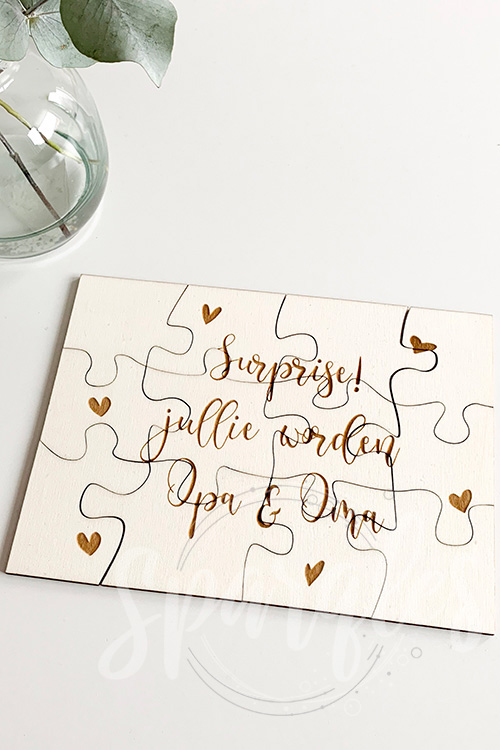 Surprise!
jullie worden
Opa & Oma